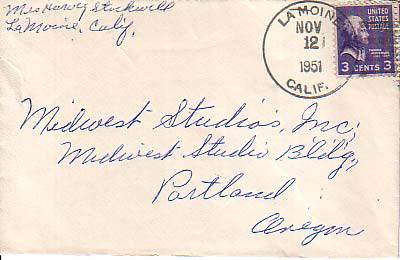 Mrs Harvey Stockwell
LaMoine, Calif.
LA MOINE
NOV
12
1951
CALIF.
UNITED
STATES
POSTAGE
3 CENTS 3
Midwest Studios, Inc;
Midwest Studio Bldg,
Portland
Oregon